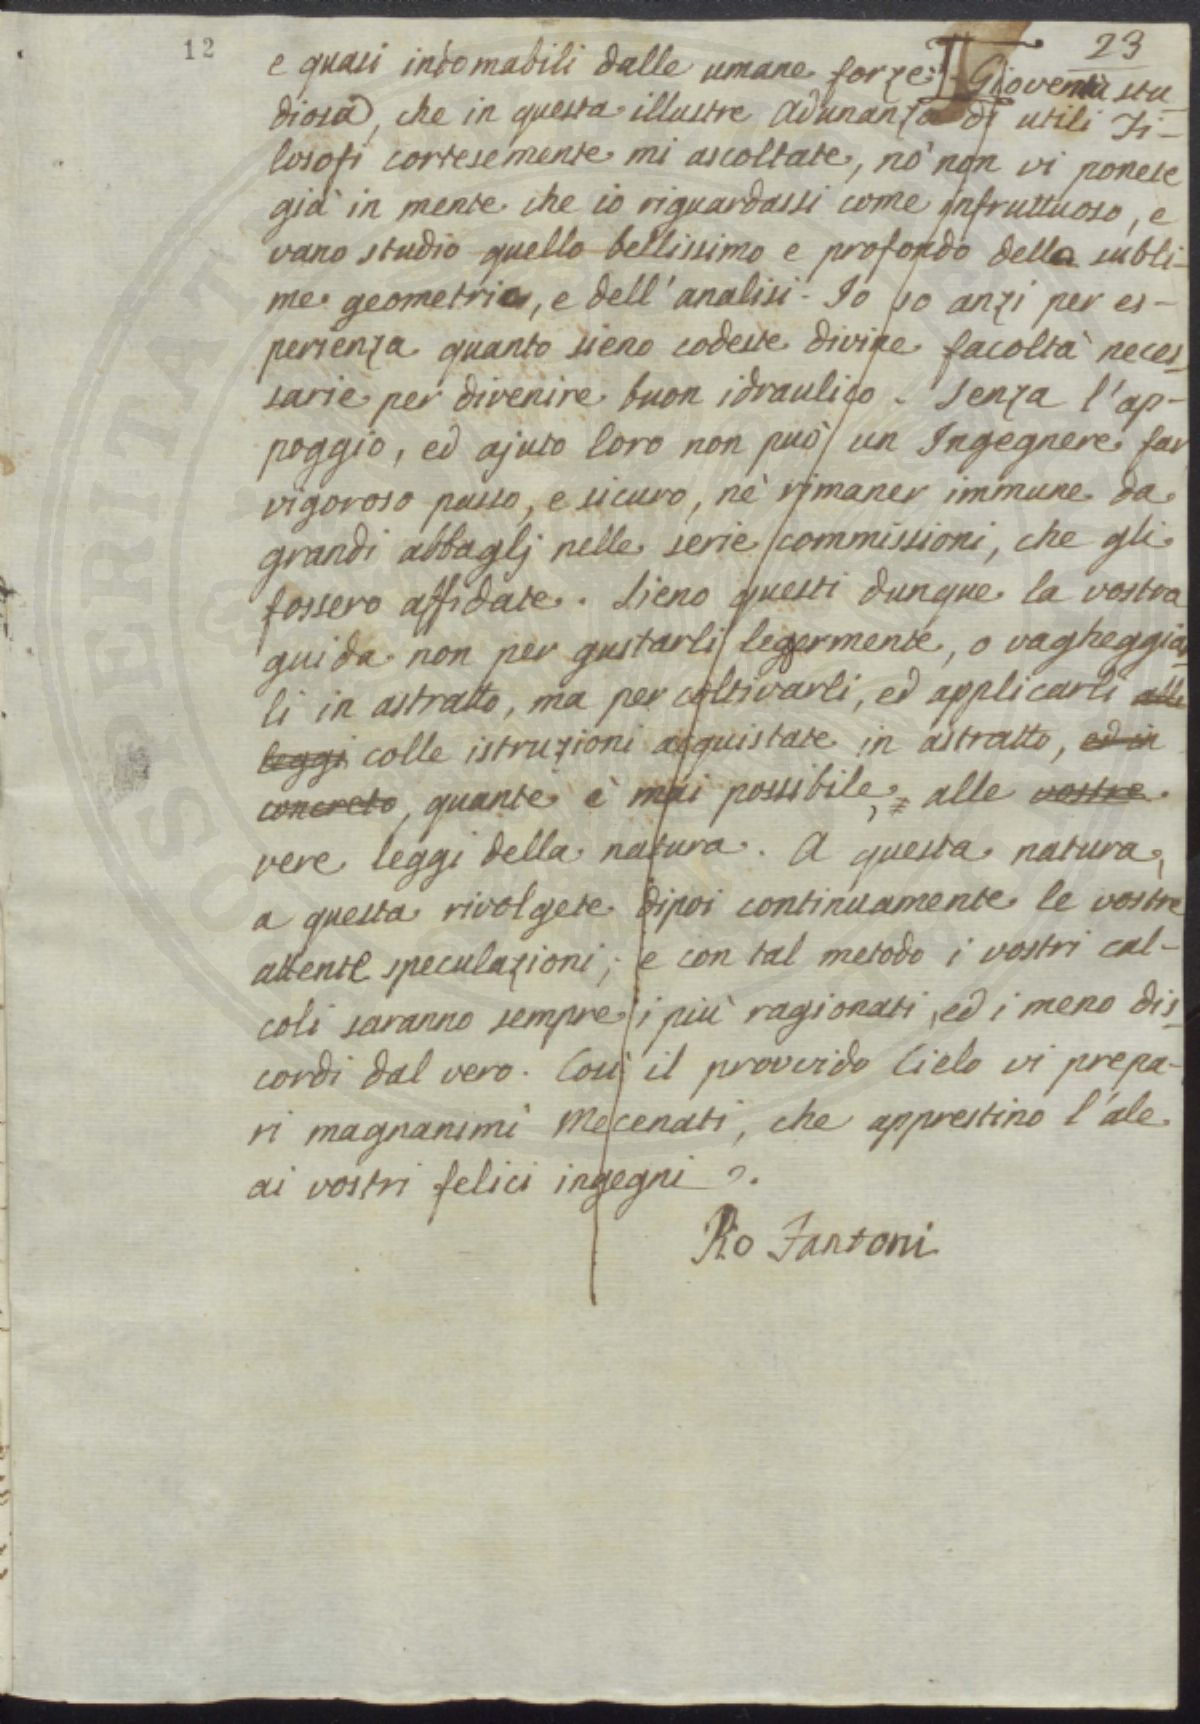 12
23
e quasi indomabili dalle umane forze. Gioventù stu-
diosa, che in questa illustre Adunanza di utili Fi-
losofi cortesemente mi ascoltate, nò non vi ponete
già in mente che io riguardassi come infruttuoso, e
vano studio quello bellissimo e profondo della subli-
me geometria, e dell'analisi. Io so anzi per es-
perienza quanto sieno codeste divine facoltà neces-
sarie per divenire buon idraulico. Senza l'ap-
poggio, ed ajuto loro non può un Ingegnere far
vigoroso passo, e sicuro, nè rimaner immune da
grandi abbaglj nelle serie commissioni, che gli
fossero affidate. Sieno questi dunque la vostra
guida non per gustarli legermente, o vagheggiar
li in astratto, ma per coltivarli, ed applicarli alle
leggi colle istruzioni acquistate in astratto, ed in
concreto, quante è mai possibile, alle vostre
vere leggi della natura. A questa natura,
a questa rivolgete dipoi continuamente le vostre
attente speculazioni; e con tal metodo i vostri cal-
coli saranno sempre i più ragionati, ed i meno dis-
cordi dal vero. Così il provvido Cielo vi prepa-
ri magnanimi Mecenati, che apprestino l'ale
ai vostri felici ingegni.
Pio Fantoni